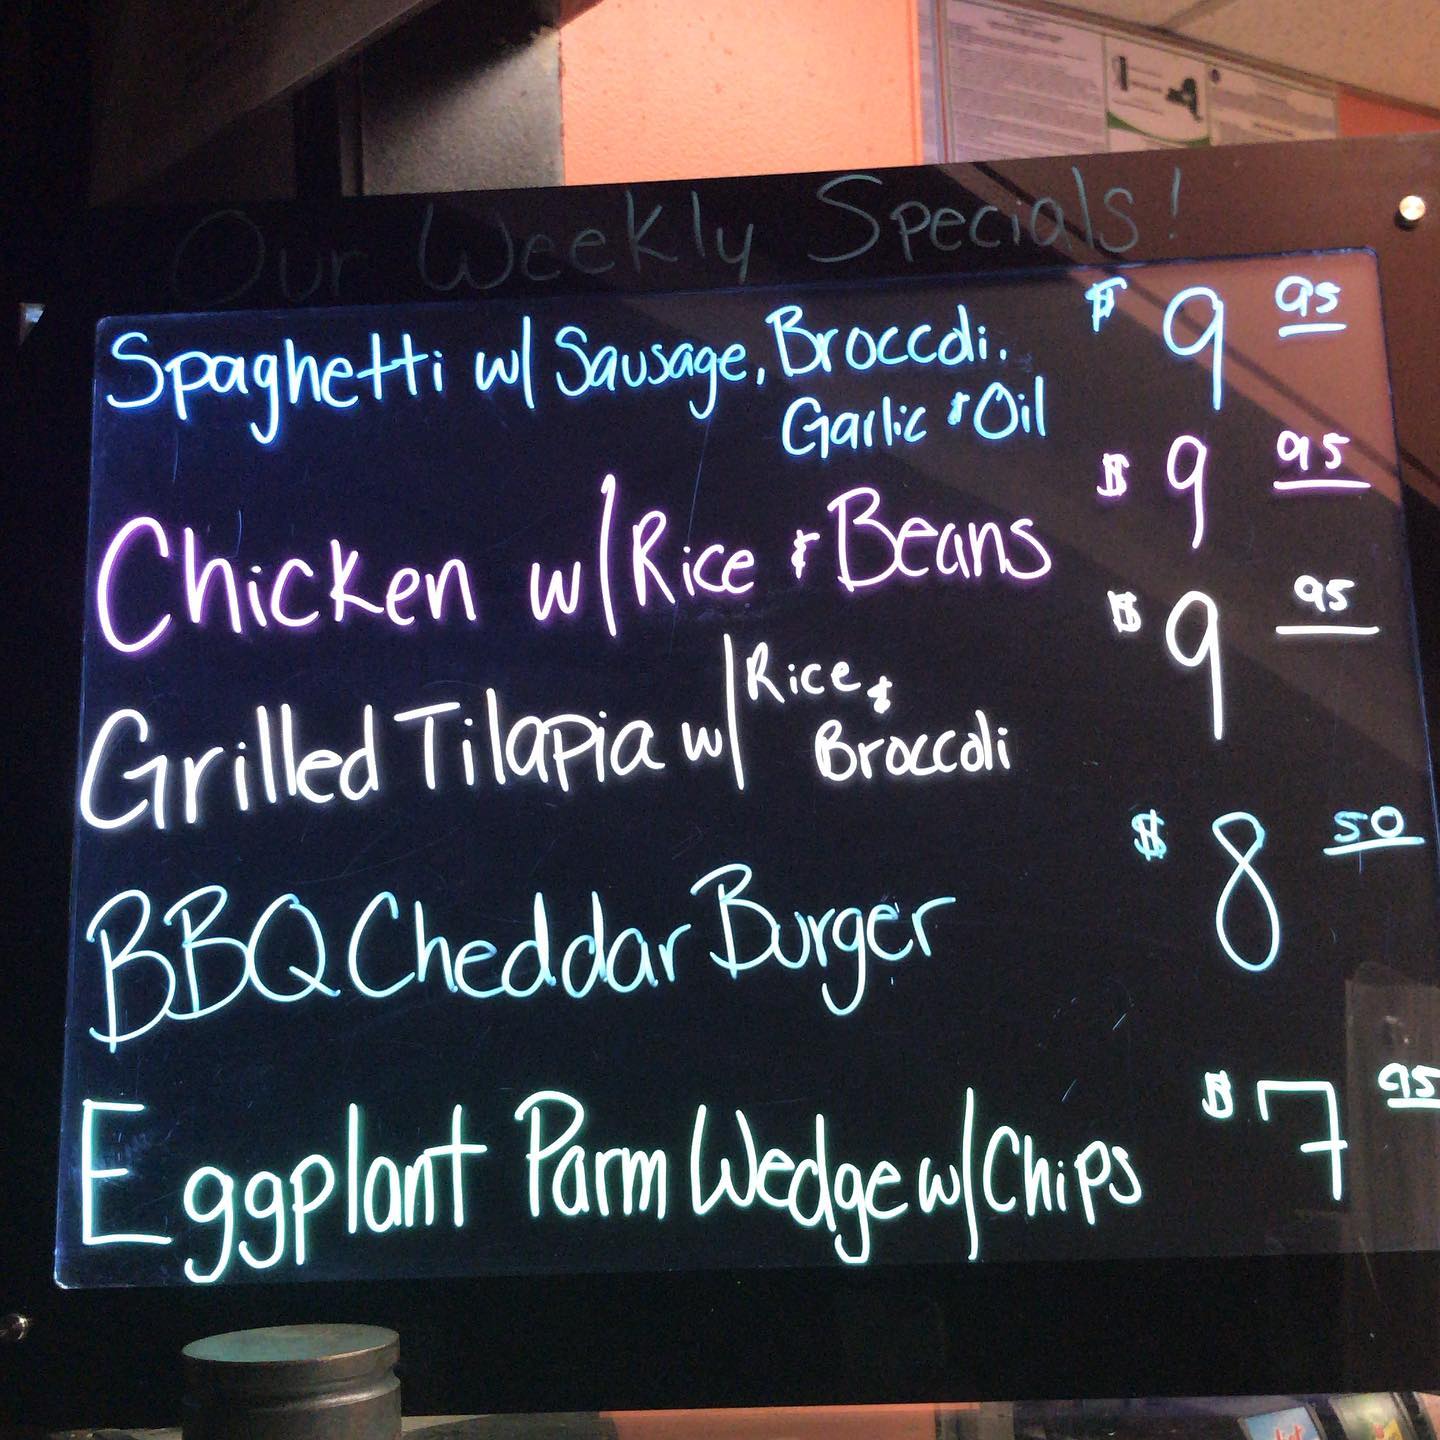 Our Weekly Specials!
Spaghetti w/ Sausage, Broccoli. $9 95
Garlic & Oil
Chicken w/ Rice & Beans $9 95
Grilled Tilapia w/ Rice & $9 95
Broccoli
BBQ Cheddar Burger $8 50
Eggplant Parm Wedge w/ Chips $7 95